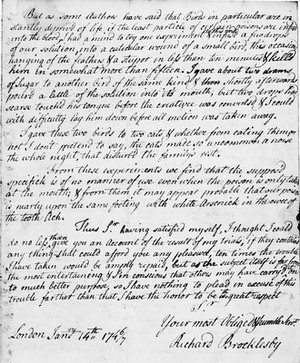 But as some authors have said that Birds in particular are in
stantly deprived of life if the least particle of certain poisons are infused
into the blood, I had a mind to try one experiment I infused a few drops
of our solution, into a cuticular wound of a small bird, this occasion
hanging of the feathers & a stupor in less than ten menutes & killed
him in somewhat more than fifteen. I gave about two drams,
of Sugar to another bird of the same kind & then shortly afterwards
pourd a little of the solution into its mouth, but two drops had
scarce touched his tongue before the creature was convulsed & I could
with difficulty lay him down before all motion was taken away.
I gave these two birds to two cats & whether from eating them or
not I don't pretend to say, the cats made so uncommon a noise
the whole night, that disturbd the family's rest.
From these experiments we find that the supposed
specifick is of no manner of use even when the poison is only taken
at the mouth, & from them it may appear probable that our poison
is nearly upon the same footing with white Arsenick in the cure of
the tooth Ach.
Thus Sr. having satisfyed my self, I thought I could
do no less than give you an account of the result of my trials, if they contain
any thing that could afford you any pleasure, ten times the trouble
I have taken would be amply repaid, but as the subject itself is far from
the most entertaining & I'm conscious that others may have carry'd them
to much better purpose, so I have nothing to plead in excuse of this
trouble farther than that I have the honor to be wt. great respect
Sr.
Your most Obliged Humble Servt.
London Janry. 14th 1746/7
Richard Brocklesby